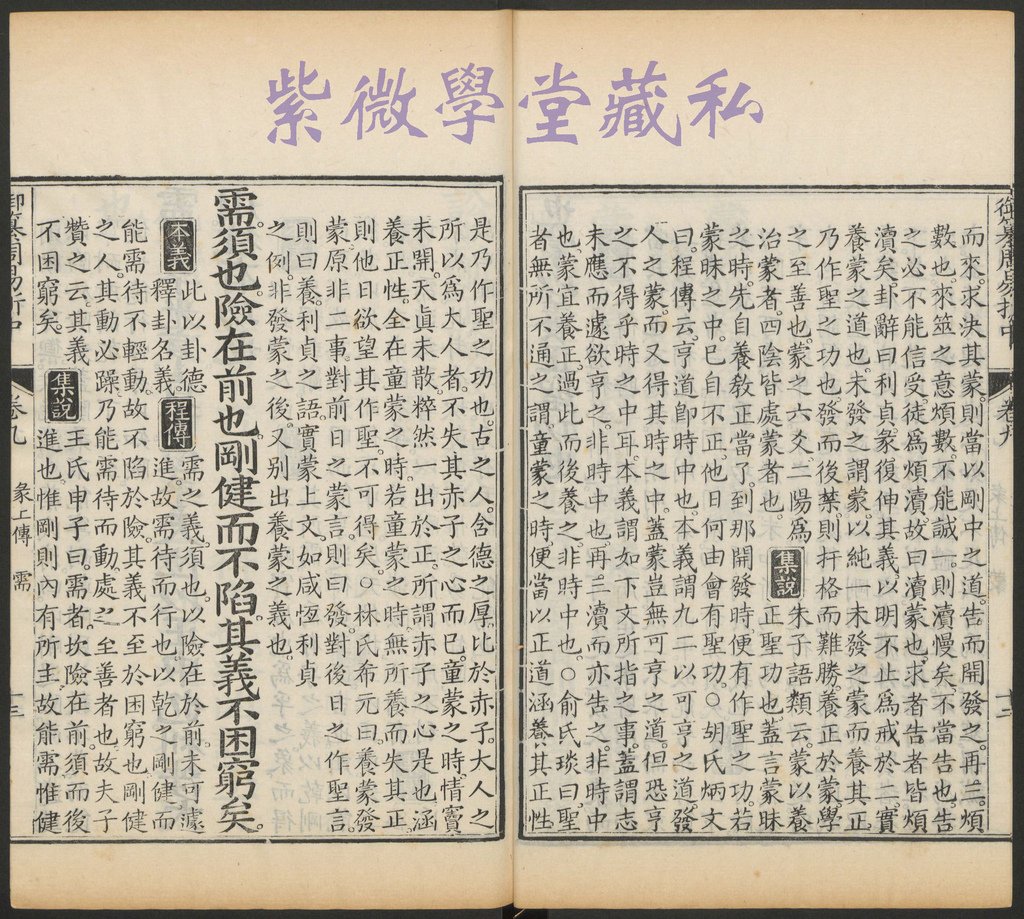 紫微學堂藏私
御纂周易折中 卷九 十二
而來。求決其蒙。則當以剛中之道。告而開發之。再三。煩
數也。來筮之意煩數。不能誠一。則瀆慢矣。不當告也。告
之必不能信受。徒爲煩瀆。故曰瀆蒙也。求者告者皆煩
瀆矣。卦辭曰利貞。彖復伸其義。以明不止爲戒於二。實
養蒙之道也。未發之謂蒙。以純一未發之蒙。而養其正。
乃作聖之功也。發而後禁。則扞格而難勝。養正於蒙。學
之至善也。蒙之六爻。二陽爲
治蒙者。四陰皆處蒙者也。
集說
朱子語類云。蒙以養
正聖功也。蓋言蒙昧
之時。先自養敎正當了。到那開發時。便有作聖之功。若
蒙昧之中。已自不正。他日何由會有聖功。○胡氏炳文
曰。程傳云。亨道卽時中也。本義謂九二以可亨之道。發
人之蒙。而又得其時之中。蓋蒙豈無可亨之道。但恐亨
之不得乎時之中耳。本義謂如下文所指之事。蓋謂志
未應而遽欲亨之。非時中也。再三瀆而亦告之。非時中
也。蒙宜養正。過此而後養之。非時中也。○俞氏琰曰。聖
者無所不通之謂。童蒙之時。便當以正道涵養其正性
是乃作聖之功也。古之人。含德之厚。比於赤子。大人之
所以爲大人者。不失其赤子之心而已。童蒙之時。情竇
未開。天眞未散。粹然一出於正。所謂赤子之心是也。涵
養正性。全在童蒙之時。若童蒙之時。無所養而失其正。
則他日欲望其作聖。不可得矣。○林氏希元曰。養蒙發
蒙。原非二事。對前日之蒙言。則曰發。對後日之作聖言
則曰養。利貞之語。實蒙上文。如咸恆利貞
之例。非發蒙之後。又別出養蒙之義也。
需須也。險在前也。剛健而不陷。其義不困窮矣。
本義
此以卦德
釋卦名義。
程傳
需之義須也。以險在於前。未可遽
進。故需待而行也。以乾之剛健。而
能需待不輕動。故不陷於險。其義不至於困窮也。剛健
之人。其動必躁。乃能需待而動。處之至善者也。故夫子
贊之云。其義
不困窮矣。
集說
王氏申子曰。需者。坎險在前。須而後
進也。惟剛則內有所主。故能需。惟健
御纂周易折中 卷九 彖上傳 需 十三